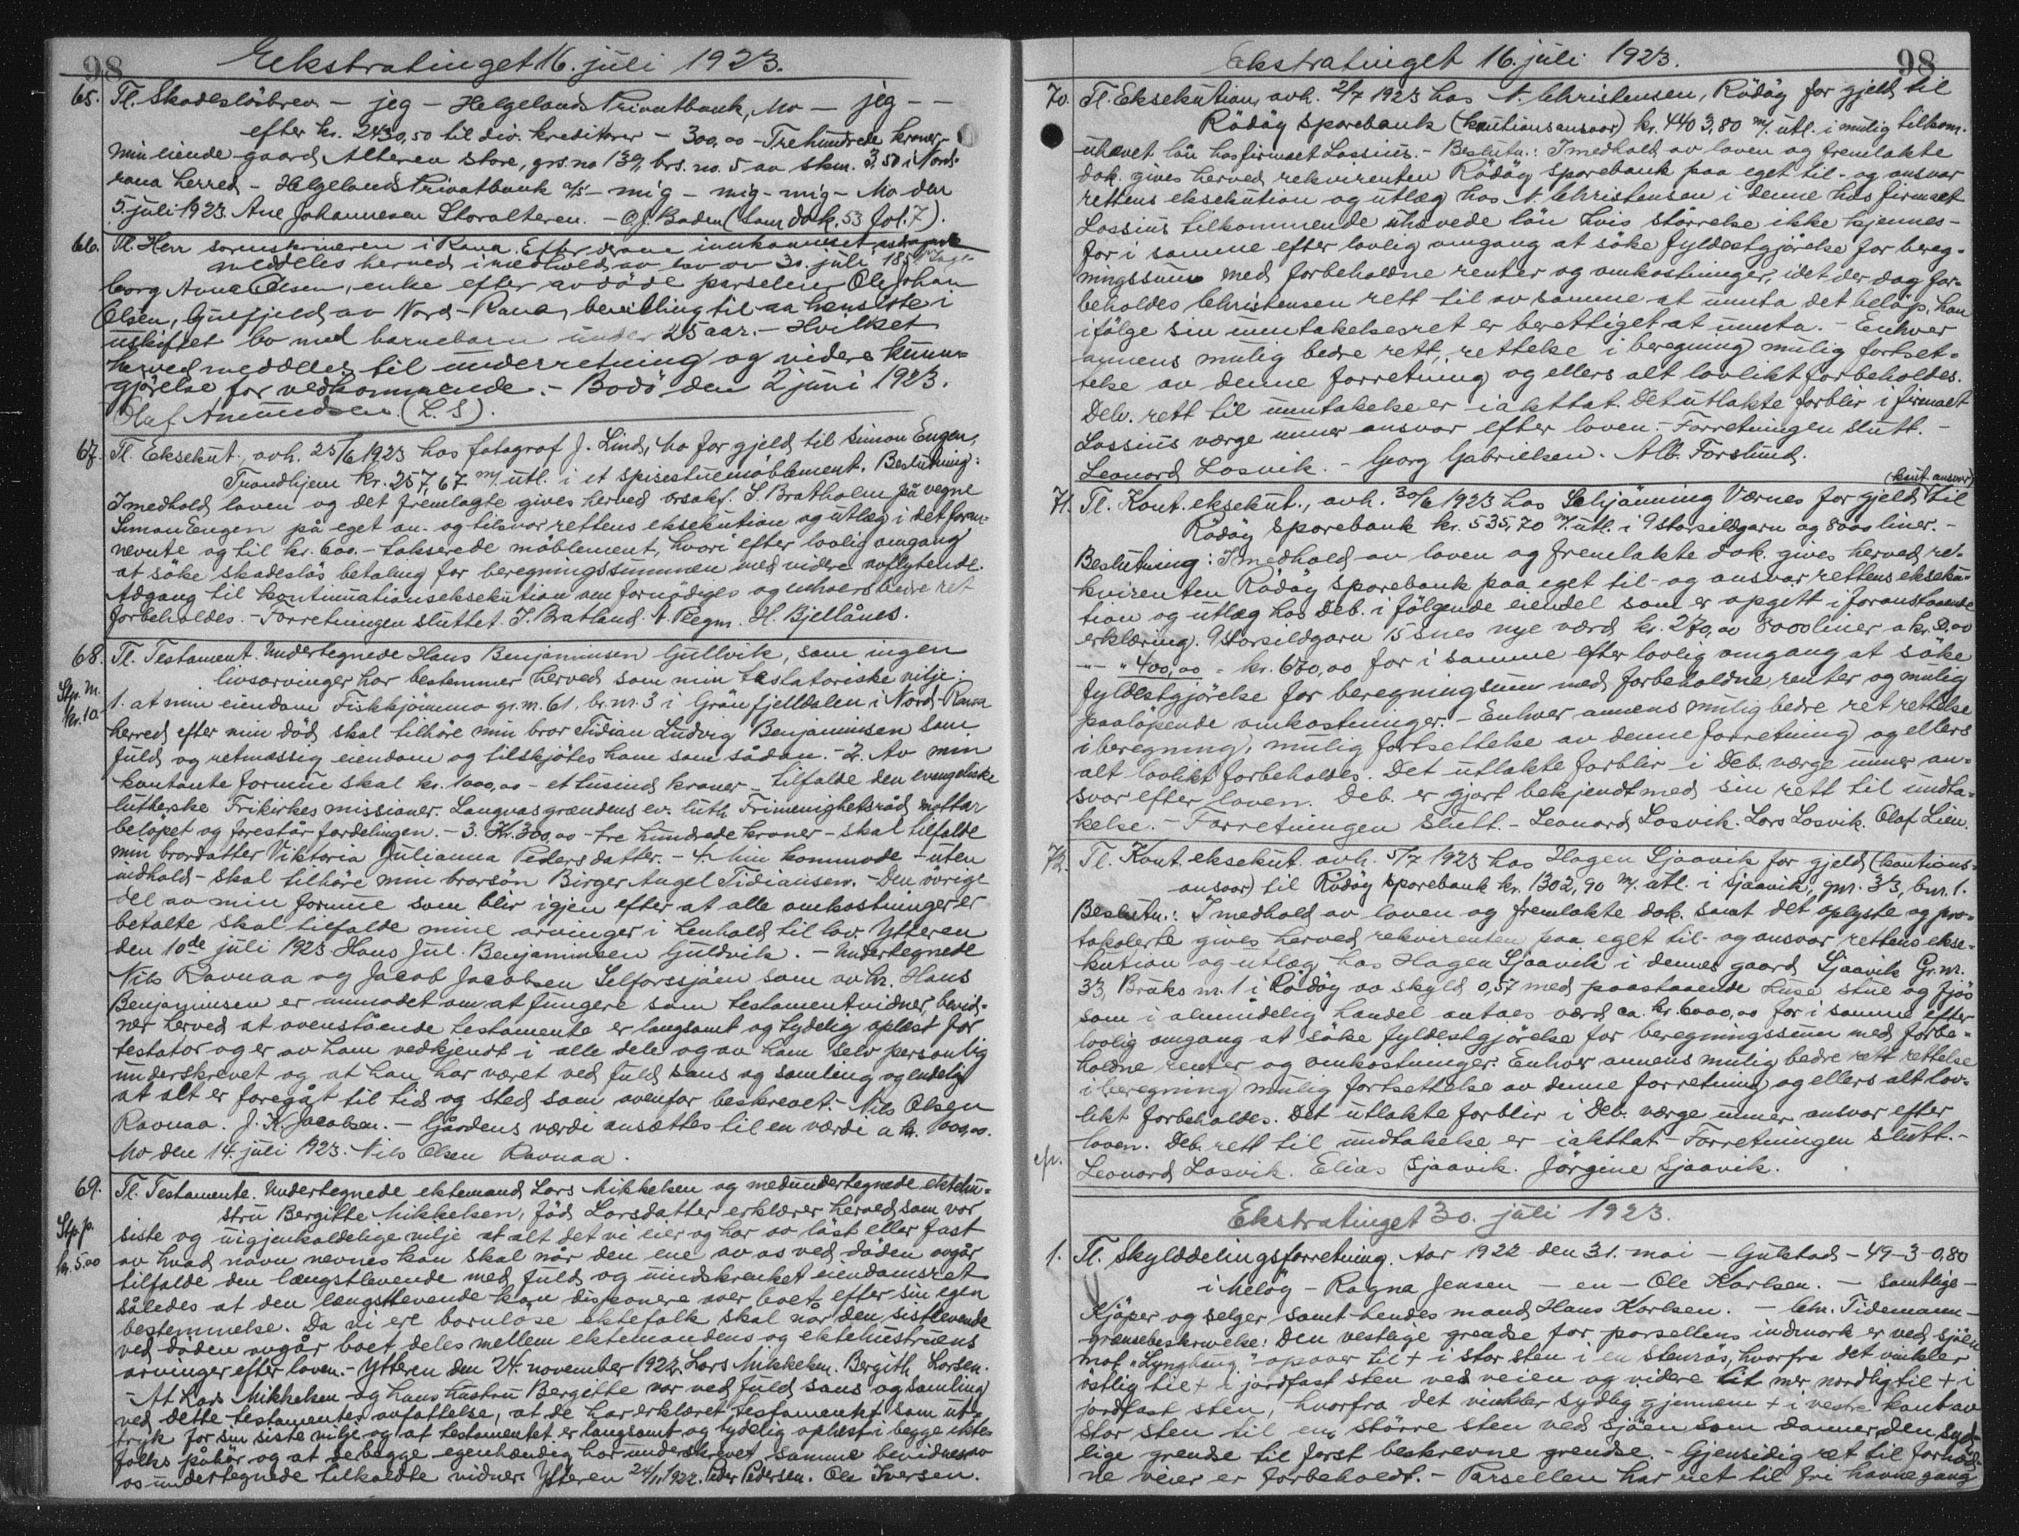 98 Ekstratinget 16. juli 1923.
65. Tl. Skadeslösbrev – jeg – Helgelands Privatbank, Mo – jeg – –
efter kr. 2430,50 til div. kreditorer – 300,00 – Trehundrede kroner –
min eiende gaard Alteren store, grs. no 139, brs. no. 5 av skm. 3,50 i Nord-
rana herred – Helgelands Privatbank a/s – mig – mig – mig – Mo den
5. juli 1923. Ane Johannesen Storalteren. – O.J. Baden (Som dok. 53 fol. 7).
66. Tl. Herr sorenskriveren i Rana. Efter derom innkommet
meddeles herved i medhold av lov av 30. juli 1851 Inge-
borg Anna Olsen, enke efter avdöde parseleier Ole Johan
Olsen, Gulfjeld, av Nord-Rana, bevilling til aa hensitte i
uskiftet bo med barnebarn under 25 aar. – Hvilket
herved meddeles til underretning og videre kunn-
gjörelse for vedkommende. – Bodö den 2 juni 1923.
Olaf Amundsen (L.S).
67. Tl. Eksekut., avh. 25/6 1923 hos fotograf J. Lind, Mo for gjeld til Simon Engen,
Trondhjem kr. 257,67 m/ utl. i et spisestuemöblement. Beslutning:
I medhold loven og det fremlagte gives herved orsakf. S. Bratholm på vegne
Simon Engen på eget an- og tilsvar rettens eksekution og utlæg i det foran-
nevnte og til kr. 600.– takserede möblement, hvori efter lovlig omgang
at söke skadeslös betaling for beregningssummen med videre avflytende.
Adgang til kontinuationseksekution om fornödiges og enhvers bedre ret
forbeholdes. – Forretningen sluttet. J. Bratland. A. Regm. H. Bjellånes.
68. Tl. Testament. Undertegnede Hans Benjaminsen Gullvik, som ingen
livsarvinger har bestemmer herved som min testatoriske vilje:
Stp. m.
kr. 10.–
1. at min eiendom Fiskkjönnmo gr. nr. 61, br. nr. 3 i Grönfjelldalen i Nord-Rana
herred efter min död skal tilhöre min bror Tidian Ludvig Benjaminsen som
fuld og retmæssig eiendom og tilskjötes ham som sådan. – 2. Av min
kontante formue skal kr. 1000,00 – et tusind kroner – tilfalde den evangeliske
lutherske Frikirkes missioner. Langvasgrændens ev. luth. Frimenighetsråd mottar
belöpet og forestår fordelingen. – 3. Kr. 300,00 – tre hundrede kroner – skal tilfalde
min brordatter Viktoria Julianna Pedersdatter. – 4. Min kommode – uten
indhold – skal tilhöre min brorsön Birger Angel Tidiansen. – Den övrige
del av min formue som blir igjen efter at alle omkostninger er
betalte skal tilfalde mine arvinger i henhold til lov. Ytteren
den 10de juli 1923 Hans Jul. Benjaminsen Guldvik. – Undertegnede
Nils Ravnaa og Jacob Jacobsen Selforssjöen som av hr. Hans
Benjaminsen er anmodet om at fungere som testamentvidner, bevid-
ner herved at ovenstående testamente er langsamt og tydelig oplest for
testator og er av ham vedkjendt i alle dele og av ham selv personlig
underskrevet og at han har været ved fuld sans og samling og endelig
at alt er foregåt til tid og sted som ovenfor beskrevet. – Nils Olsen
Ravnaa. J. K. Jacobsen. – Gårdens værdi ansættes til en værdi a kr. 1000,00.
Mo den 14. juli 1923. Nils Olsen Ravnaa.
69. Tl. Testamente. Undertegnede ektemand Lars Mikkelsen og medundertegnede ektehu-
stru Bergitte Mikkelsen, föd Larsdatter erklærer herved som vor
Stp. p.
kr. 5.00
siste og uigjenkaldelige vilje at alt det vi eier og har av löst eller fast
av hvad navn nevnes kan skal når den ene av os ved döden avgår
tilfalde den længstlevende med fuld og uindskrenket eiendomsret
således at den længstlevende kan disponere over boet efter sin egen
bestemmelse. Da vi er barnlöse ektefolk skal når den sistlevende
ved döden avgår boet deles mellem ektemandens og ektehustruens
arvinger efter loven. – Ytteren den 24. november 1922. Lars Mikkelsen. Bergith Larsen.
– At Lars Mikkelsen og hans hustru Bergitte var ved fuld sans og samling
ved dette testamentes avfattelse, at de har erklæret testamentet som ut-
tryk for sin siste vilje og at testamentet er langsomt og tydelig oplest i begge ekte-
folks påhör og at de begge egenhændig har underskrevet samme bevidnes av
os undertegnede tilkaldte vidner. Ytteren 24/11 1922. Peder Pedersen. Ole Iversen.
Ekstratinget 16. juli 1923. 98
70. Tl. Eksekution, avh. 2/7 1923 hos A. Christensen, Rödöy for gjeld til
Rödöy sparebank (kautionsansvar) kr. 4403,80 m/ utl. i mulig tilkom.
uhævet lön hos firmaet Lossius. – Beslutn.: I medhold av loven og fremlakte
dok. gives herved rekvirenten Rödöy sparebank paa eget til- og ansvar
rettens eksekution og utlæg hos A. Christensen i denne hos firmaet
Lossius tilkommende uhævede lön hvis störrelse ikke kjennes –
for i samme efter lovlig omgang at söke fyldestgjörelse for bereg-
ningssum med forbeholdne renter og omkostninger, idet der dog for-
beholdes Christensen rett til av samme at unnta det belöp, han
ifölge sin unntakelsesret er berettiget at unnta. – Enhver
annens mulig bedre rett, rettelse i beregning, mulig fortset-
telse av denne forretning og ellers alt lovlikt forbeholdes.
Deb. rett til unntakelse er iakttat. Det utlakte forblir i firmaet
Lossius værge unner ansvar efter loven. – Forretningen slutt. –
Leonard Losvik. – Georg Gabrielsen. Alb. Forslund.
(kaut. ansvar)
71. Tl. Kont. eksekut., avh. 30/6 1923 hos Schjänning Værnes for gjeld til
Rödöy sparebank kr. 535,70 m/ utl. i 9 storsildgarn og 8000 liner. –
Beslutning: I medhold av loven og fremlakte dok. gives herved re-
kvirenten Rödöy sparebank paa eget til- og ansvar rettens ekseku-
tion og utlæg hos Deb. i fölgende eiendel som er opgitt i foranstaaende
erklæring. 9 storsildgarn 15 snes nye værd kr. 270,00 8000 liner a kr.
– " – " 400,00 = kr. 670,00 for i samme efter lovlig omgang at söke
fyldestgjörelse for beregningsum med forbeholdne renter og mulig
paalöpende omkostninger. – Enhver annens mulig bedre ret rettelse
i beregning, mulig fortsettelse av denne forretning og ellers
alt lovlikt forbeholdes. Det utlakte forblir i Deb. værge unner an-
svar efter loven. Deb. er gjort bekjendt med sin rett til undta-
kelse. – Forretningen slutt. – Leonard Losvik. Lars Losvik. Olaf Lien.
72. Tl. Kont. eksekut. avh. 5/7 1923 hos Hagen Sjaavik for gjeld (kautions-
ansvar) til Rödöy sparebank kr. 1302,90 m/ utl. i Sjaavik, gnr. 33, bnr. 1.
Beslutn.: I medhold av loven og fremlakte dok. samt det oplyste og pro-
tokolerte gives herved rekvirenten paa eget til- og ansvar rettens ekse-
kution og utlæg hos Hagen Sjaavik i dennes gaard Sjaavik Gr. nr.
33, Bruks nr. 1 i Rödöy av skyld 0,57 med paastaaende huse stue og fjös
som i almindelig handel antaes værd ca. kr. 6000,00 for i samme efter
lovlig omgang at söke fyldestgjörelse for beregningssum med forbe-
holdne renter og omkostninger. Enhver annens mulig bedre rett rettelse
i beregning mulig fortsettelse av denne forretning og ellers alt lov-
likt forbeholdes. Det utlakte forblir i Deb. værge unner ansvar efter
loven. Deb. rett til undtakelse er iakttat – Forretningen slutt. –
Leonard Losvik. Elias Sjaavik. Jörgine Sjaavik.
Ekstratinget 30. juli 1923.
1. Tl. Skylddelingsforretning. Aar 1922 den 31. mai – Gulstad – 49-3-0,80
i Melöy – Ragna Jensen – en – Ole Karlsen. – samtlige –
Kjöper og selger samt hendes mand Hans Karlsen. – Chr. Tidemann –
Grænsebeskrivelse: Den vestlige grendse for parsellens indmark er ved sjöen
mot "Lynghaug" opover til + i stor sten i en stenrös, hvorfra det vinkler
vetlig til + i jordfast sten ved veien og videre litt mer nordlig til + i
jordfast sten, hvorfra det vinkler sydlig gjennem + i vestre kant av
stor sten til en större sten ved sjöen som danner den syd-
lige grendse til först beskrevne grendse. – Gjensidig ret til fornöd-
ne veier er forbeholdt. – Parsellen har ret til fri havnegang